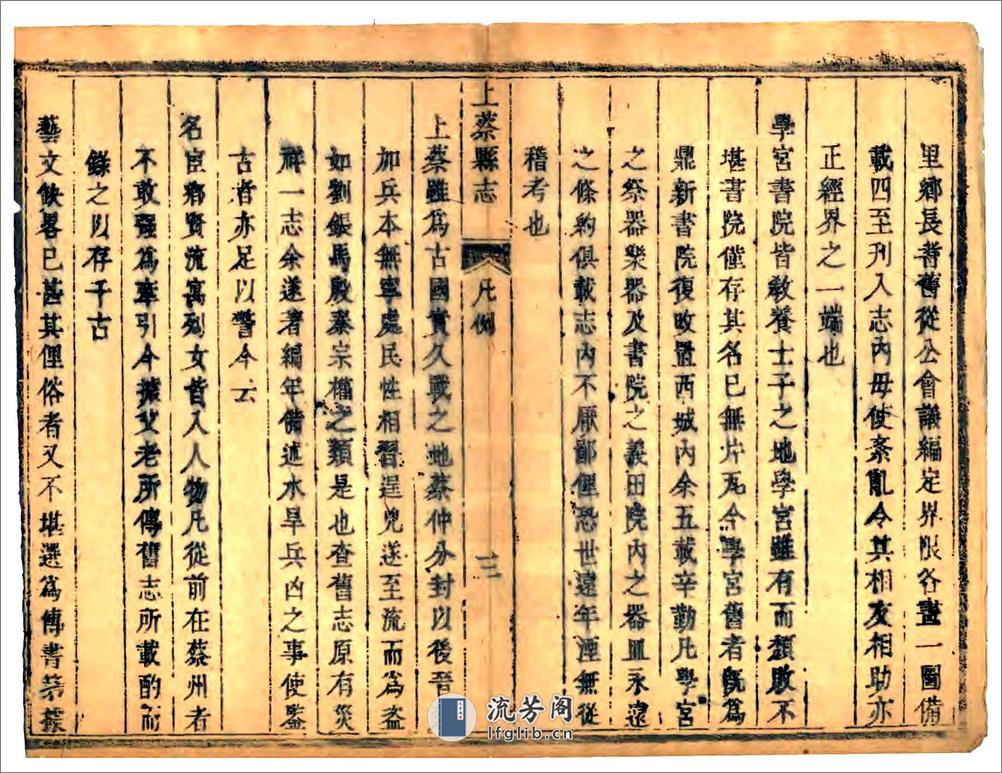 里鄉長耆舊從公會議編定界限各畫一圖備
載四至刊入志內毋使紊亂令其相友相助亦
正經界之一端也
學宮書院皆敎養士子之地學宮雖有而頹敗不
堪書院僅存其名已無片瓦今學宮舊者旣爲
鼎新書院復改置西城內余五載辛勤凡學宮
之祭器樂器及書院之義田院內之器皿永遠
之條約俱載志內不厭鄙俚恐世遠年湮無從
稽考也
上蔡縣志
凡例
三
上蔡雖爲古國實久戰之地蔡仲分封以後晉
加兵本無寧處民性相習逞兇遂至流而爲盜
如劉𬬮馬殷秦宗權之類是也查舊志原有災
祥一志余遂著編年備述水旱兵凶之事使監
古者亦足以警今云
名臣鄉賢流寓列女皆入人物凡從前在蔡州者
不敢强爲牽引今據父老所傳舊志所載酌而
錄之以存千古
藝文缺畧已甚其俚俗者又不堪選爲傳書茅據
流芳阁
lfglib.cn